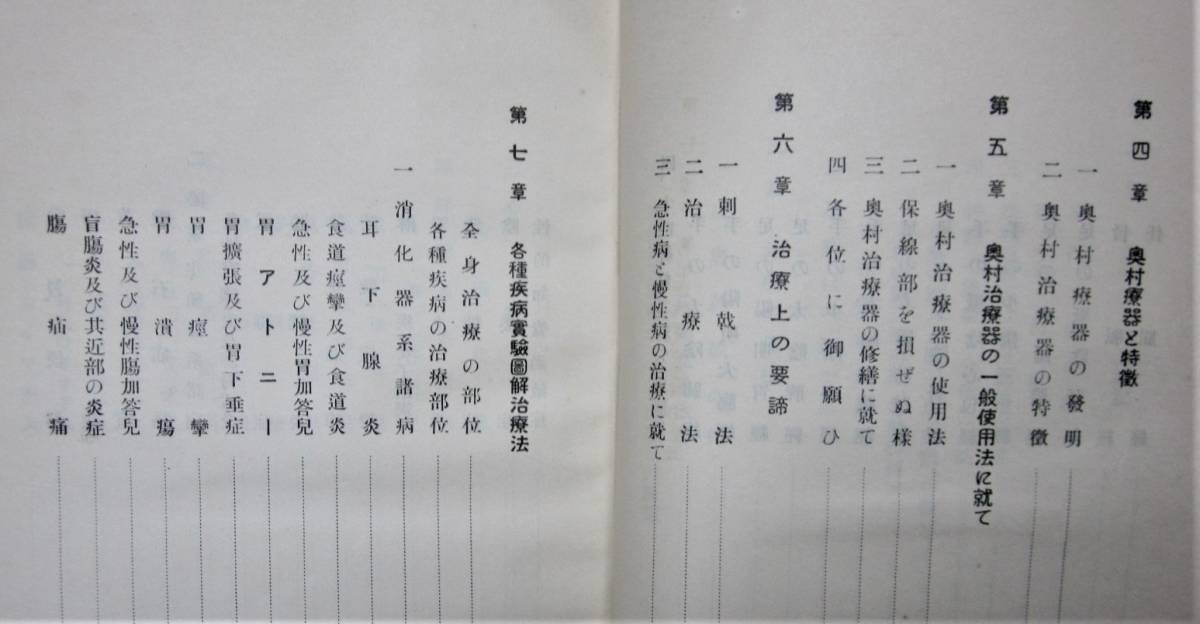 第四章 奥村療器と特徴
一 奥村療器の發明
二 奥村治療器の特徴
第五章 奥村治療器の一般使用法に就て
一 奥村治療器の使用法
二 保線部を損ぜぬ様
三 奥村治療器の修繕に就て
四 各位に御願ひ
第六章 治療上の要諦
一 刺戟法
二 治療法
三 急性病と慢性病の治療に就て
第七章 各種疾病實驗圖解治療法
全身治療の部位
各種疾病の治療部位
一 消化器系諸病
耳下腺炎
食道痙攣及び食道炎
急性及び慢性胃加答兒
胃アトニー
胃擴張及び胃下垂症
胃痙攣
胃潰瘍
急性及び慢性腸加答兒
盲腸炎及び其近部の炎症
腸疝痛